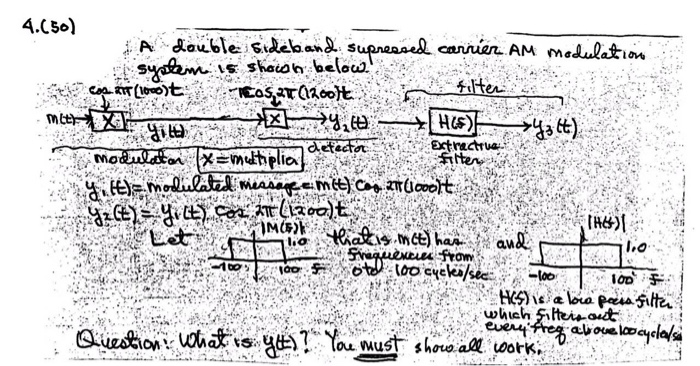 4.(50)
A double sideband supressed carrier AM modulation
system is shown below
cos 2π(1000)t cos 2π(1200)t filter
m(t) X y₁(t) X y₂(t) H(f) y₃(t)
modulator X=multiplier detector Extractive filter
y₁(t) = modulated message = m(t) cos 2π(1000)t
y₂(t) = y₁(t) cos 2π(1200)t
Let |M(f)| 1.0 -100 100 f that is m(t) has and |H(f)| 1.0 -100 100 f
frequencies from
0 to 100 cycles/sec
H(f) is a low pass filter
which filters out
every freq above 100 cycles/sec
Question: What is y(t)? You must show all work.